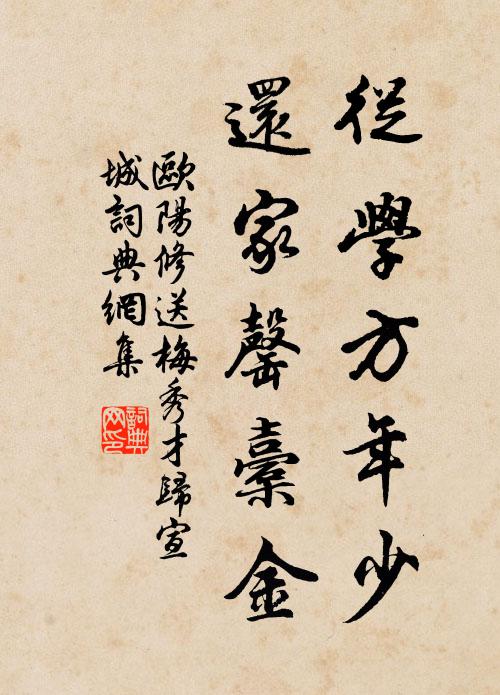 從學方年少
還家罄橐金
歐陽修送梅秀才歸宣
城詞典網集
詞典
网印